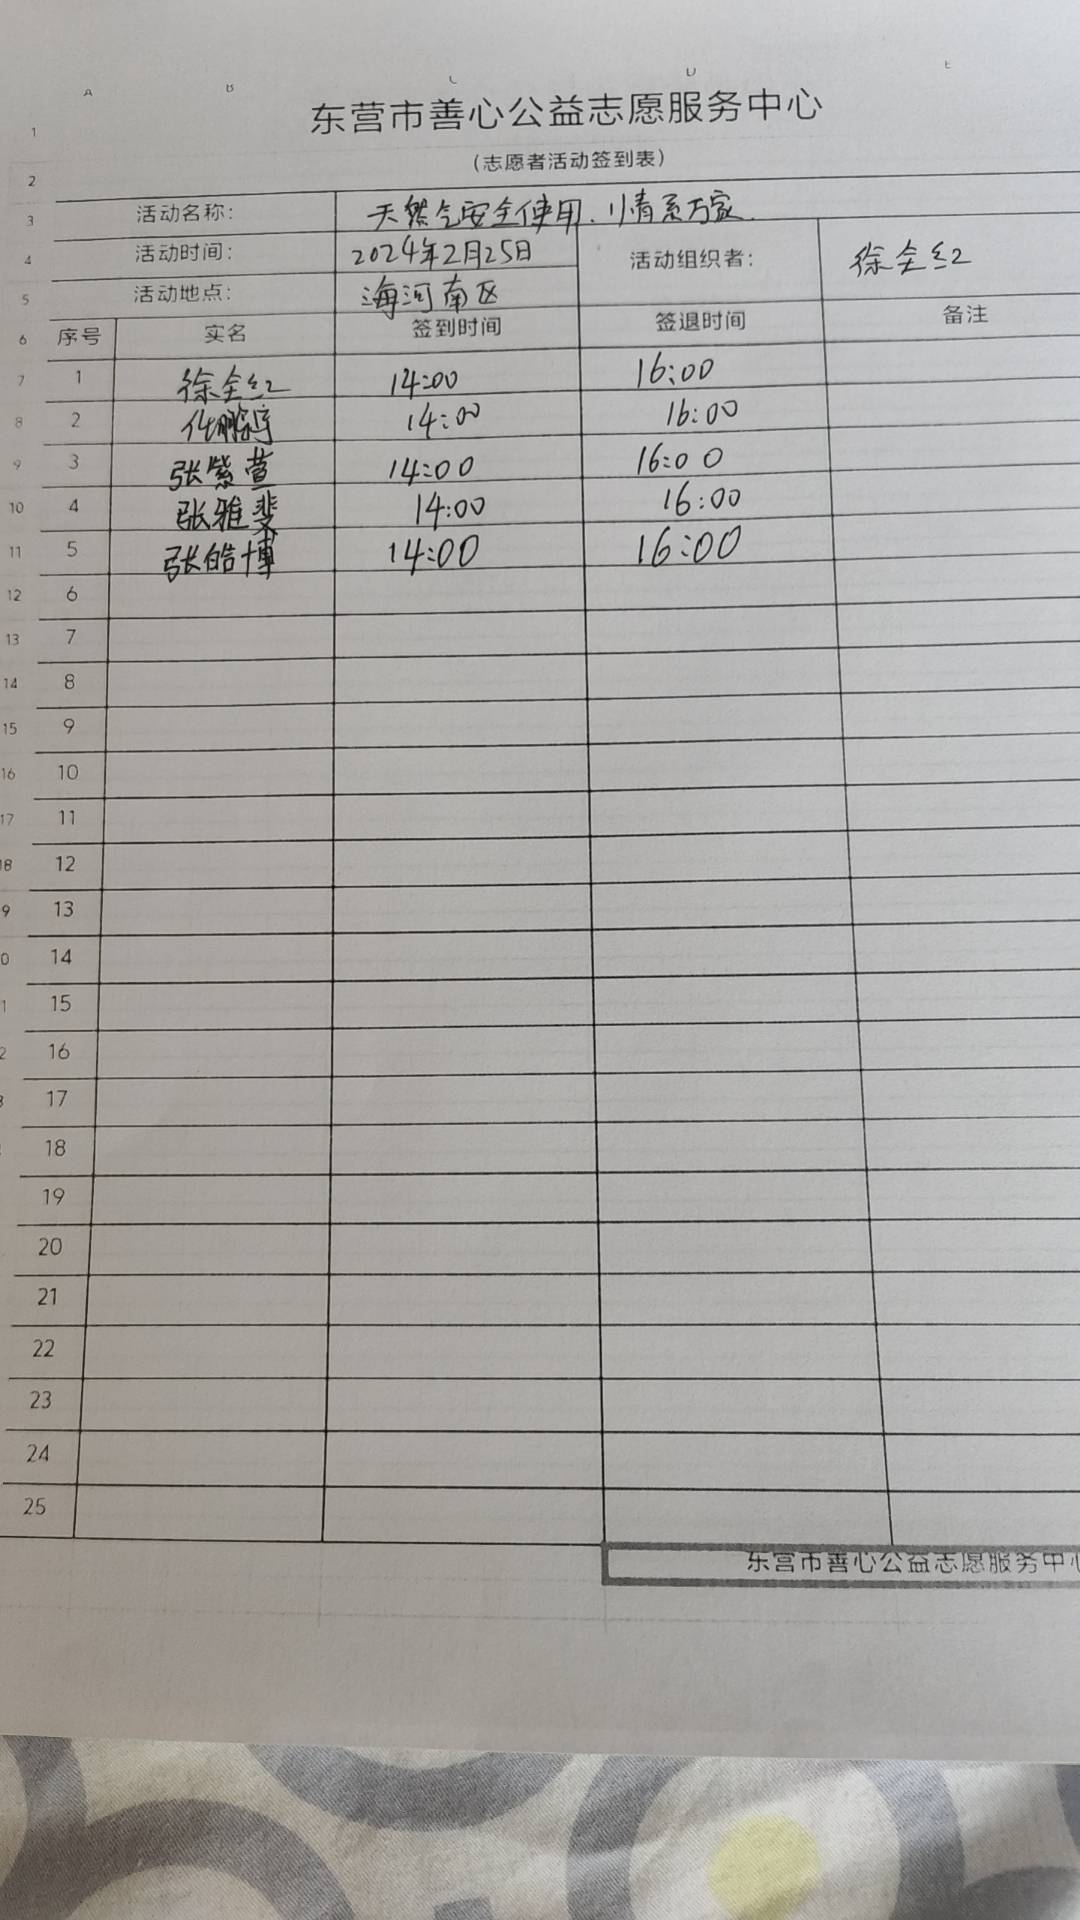 A B C D E
1 东营市善心公益志愿服务中心
2 (志愿者活动签到表)
3 活动名称: 天然气安全使用、情系万家.
4 活动时间: 2024年2月25日 活动组织者: 徐全红
5 活动地点: 海河南区
6 序号 实名 签到时间 签退时间 备注
7 1 徐全红 14:00 16:00
8 2 14:00 16:00
9 3 张紫萱 14:00 16:00
10 4 张雅斐 14:00 16:00
11 5 张皓博 14:00 16:00
12 6
13 7
14 8
15 9
16 10
17 11
18 12
9 13
0 14
1 15
2 16
3 17
18
19
20
21
22
23
24
25
东营市善心公益志愿服务中心